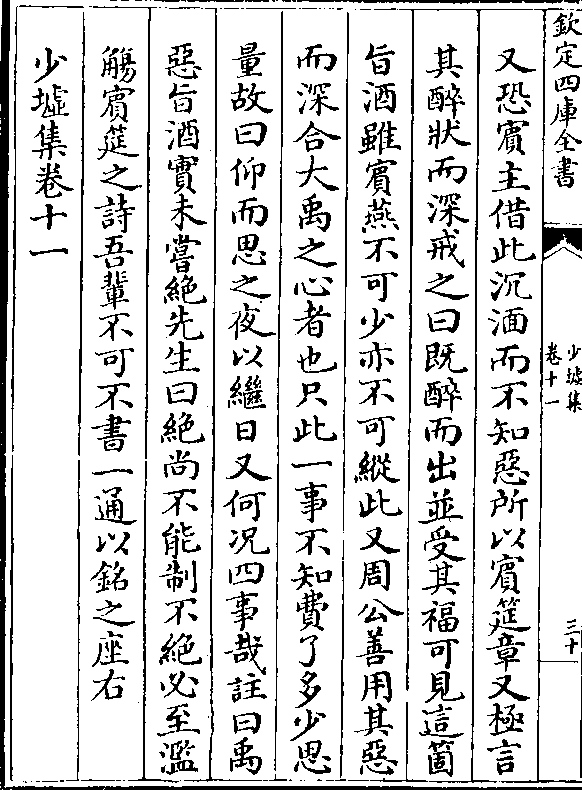 欽定四庫全書
少墟集
卷十一
三十
又恐賓主借此沉湎而不知惡所以賓筵章又極言
其醉狀而深戒之曰既醉而出並受其福可見這箇
旨酒雖賓燕不可少亦不可縱此又周公善用其惡
而深合大禹之心者也只此一事不知費了多少思
量故曰仰而思之夜以繼日又何况四事哉註曰禹
惡旨酒實未嘗絶先生曰絶尚不能制不絶必至濫
觴賓筵之詩吾輩不可不書一通以銘之座右
少墟集卷十一